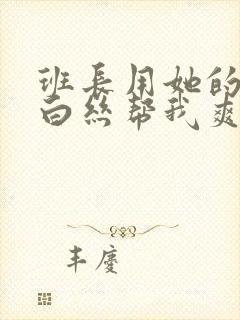 班長用她的
白絲帮我爽
丰慶